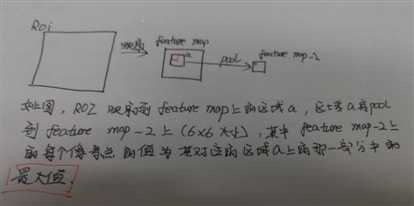 Roi
映射 feature map
a
pool feature map-2
如上图，ROI 映射到 feature map 上的区域 a，区域 a 再 pool
到 feature map-2 上 (6×6 大小)，其中 feature map-2 上
的每个像素点的值为其对应的区域 a 上的那一部分中的
最大值.